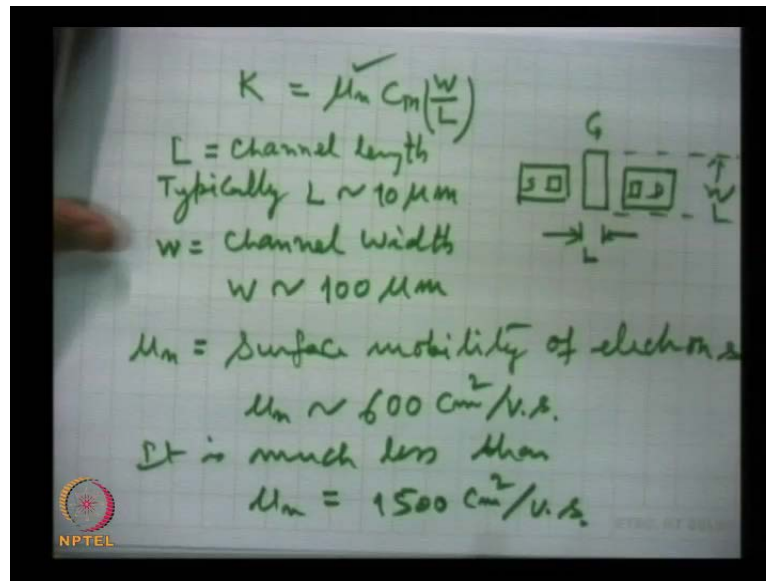 K = μn Cm(W/L)
L = Channel length
Typically L ~ 10 μm
W = Channel Width
W ~ 100 μm
μn = Surface mobility of electrons
μn ~ 600 cm²/v.s.
It is much less than
μn = 1500 cm²/v.s.
G
S D W
L
NPTEL